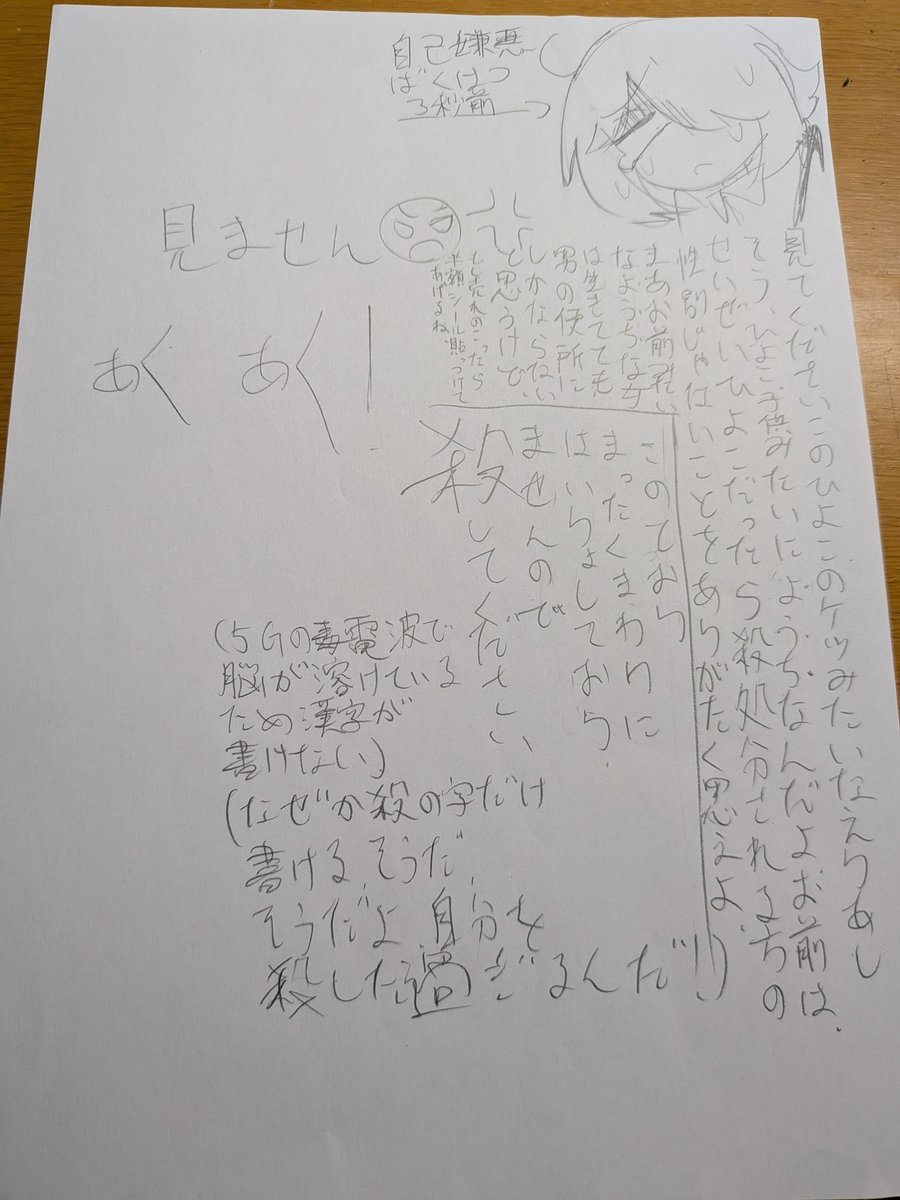 自己嫌悪
ばくはつ
3秒前
見てくださいこのひよこのケツみたいなえりあし
そう、ひよこ、子供みたいにようちなんだよお前は.
せいぜいひよこだったら殺処分されるちの
性別じゃはいことをありがたく思えよ
まあお前みたい
なようちな女
は生きてても
男の便所に
しかならない
と思うけど、
もし売れのこったら
半額シール貼っつけて
あげるね
見ません
あく あく!
このており
まったくまわりに
はいりょしており
ませんので
殺してください
(5Gの毒電波で
脳が溶けている
ため漢字が
書けない)
(なぜか殺の字だけ
書ける、そうだ、
そうだよ、自分を
殺した過ぎるんだ!!)